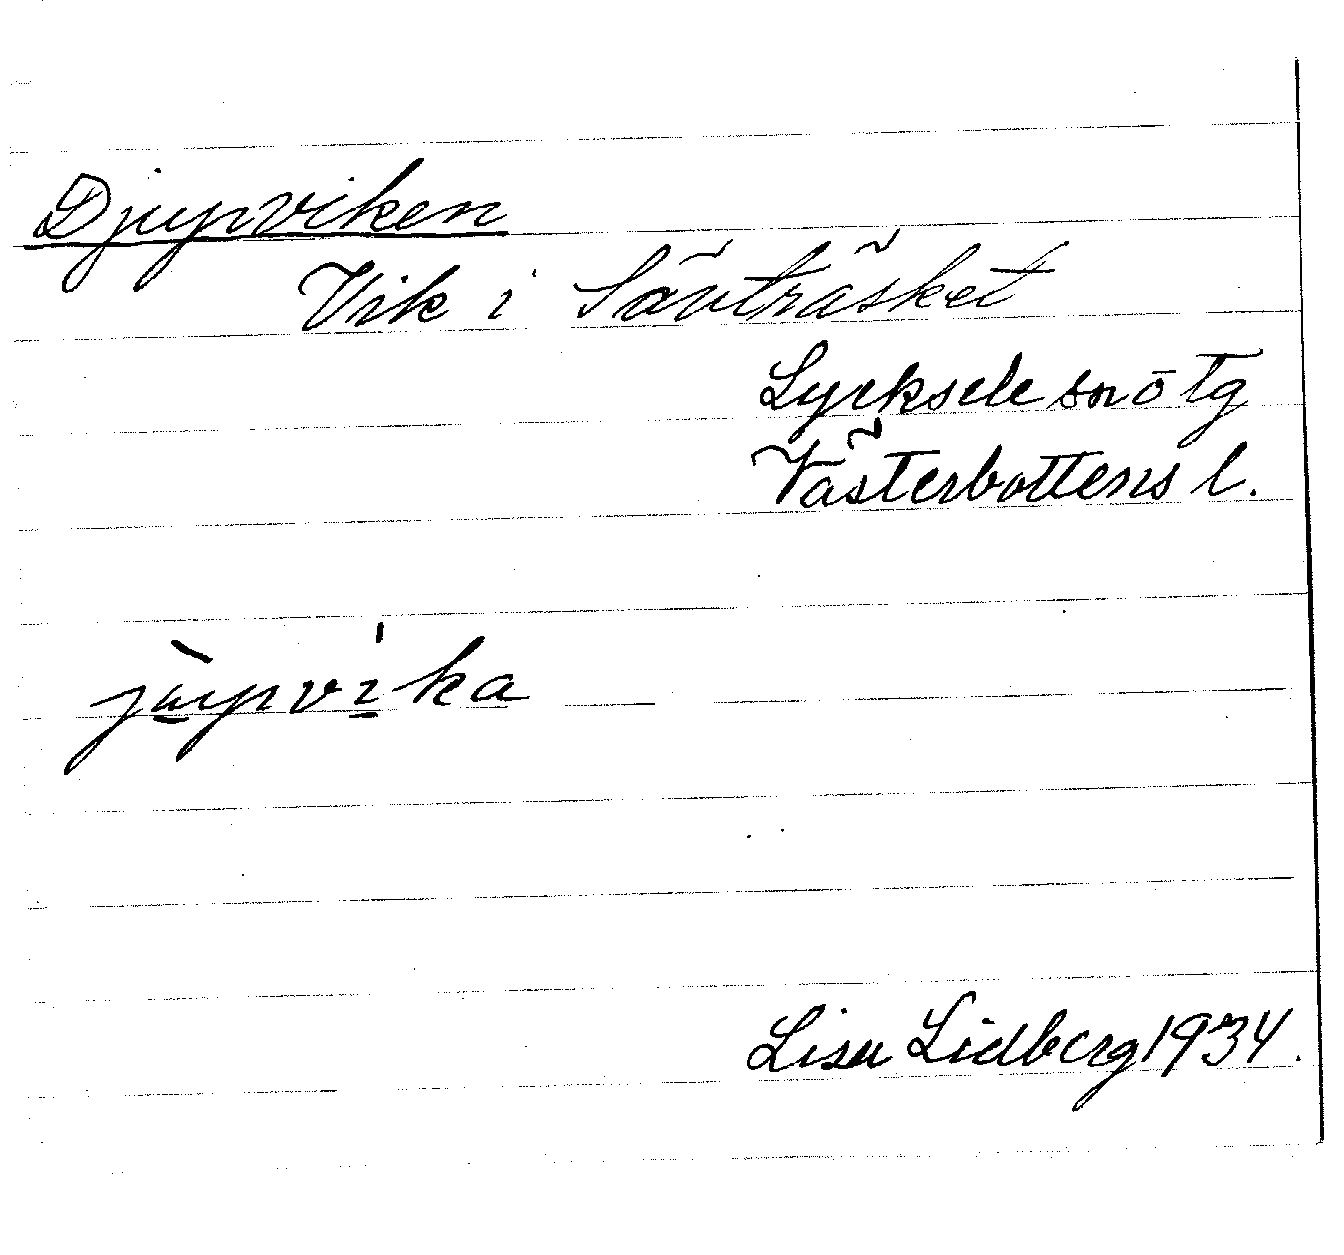 Djupviken
Vik i Sävträsket
Lycksele sn o tg
Västerbottens l.
jùpvíka
Lisa Lidberg 1934.